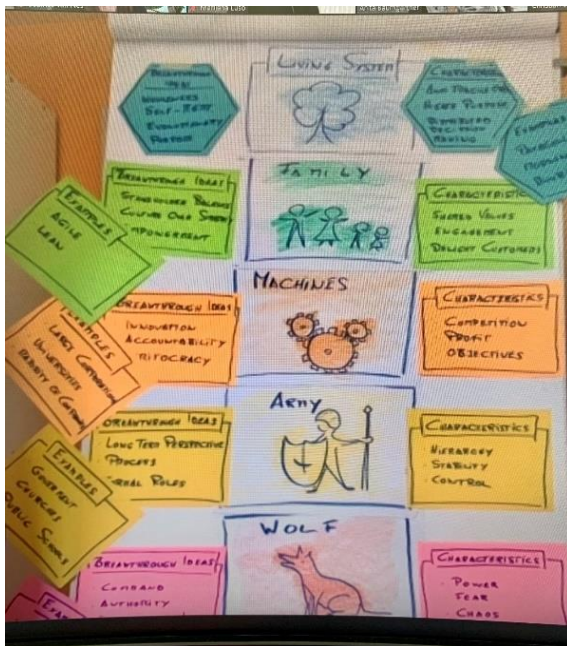 LIVING SYSTEM
BREAKTHROUGH
IDEAS
WHOLENESS
SELF-MGMT
EVOLUTIONARY
PURPOSE
CHARACTERISTICS
PURPOSE
DISTRIBUTED
DECISION
MAKING
EXAMPLES
FAMILY
BREAKTHROUGH IDEAS
STAKEHOLDER BALANCE
CULTURE OVER STRATEGY
EMPOWERMENT
CHARACTERISTICS
SHARED VALUES
ENGAGEMENT
DELIGHT CUSTOMERS
EXAMPLES
AGILE
LEAN
MACHINES
BREAKTHROUGH IDEAS
INNOVATION
ACCOUNTABILITY
CHARACTERISTICS
COMPETITION
PROFIT
OBJECTIVES
EXAMPLES
LARGE CORPORATIONS
UNIVERSITIES
ARMY
BREAKTHROUGH IDEAS
LONG TERM PERSPECTIVE
PROCESS
ROLES
CHARACTERISTICS
· HIERARCHY
· STABILITY
· CONTROL
EXAMPLES
CHURCHES
PUBLIC SCHOOLS
WOLF
BREAKTHROUGH IDEAS
· COMMAND
· AUTHORITY
CHARACTERISTICS
· POWER
FEAR
· CHAOS